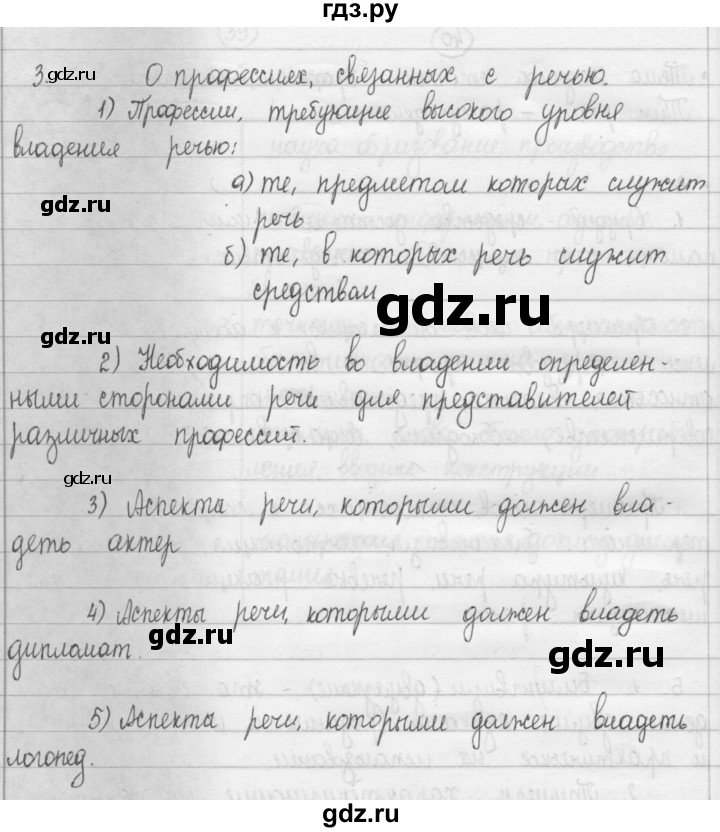 гдз.ру
3.
gdz.ru
О профессиях, связанных с речью.
1) Профессии, требующие высокого уровня
владения речью:
а) те, предметом которых служит
gdz.ru
речь
б) те, в которых речь служит
средствам
gdz.ru
gdz.ru
2) Необходимость во владении определен-
ными сторонами речи для представителей
различных профессий.
gdz.ru
3) Аспекта речи, которыми должен вла-
деть актер
4) Аспекты речи, которыми должен владеть
gdz.ru
дипломат.
gdz.ru
5) Аспекта речи, которыми должен владеть
логопед.
gdz.ru
gdz.ru